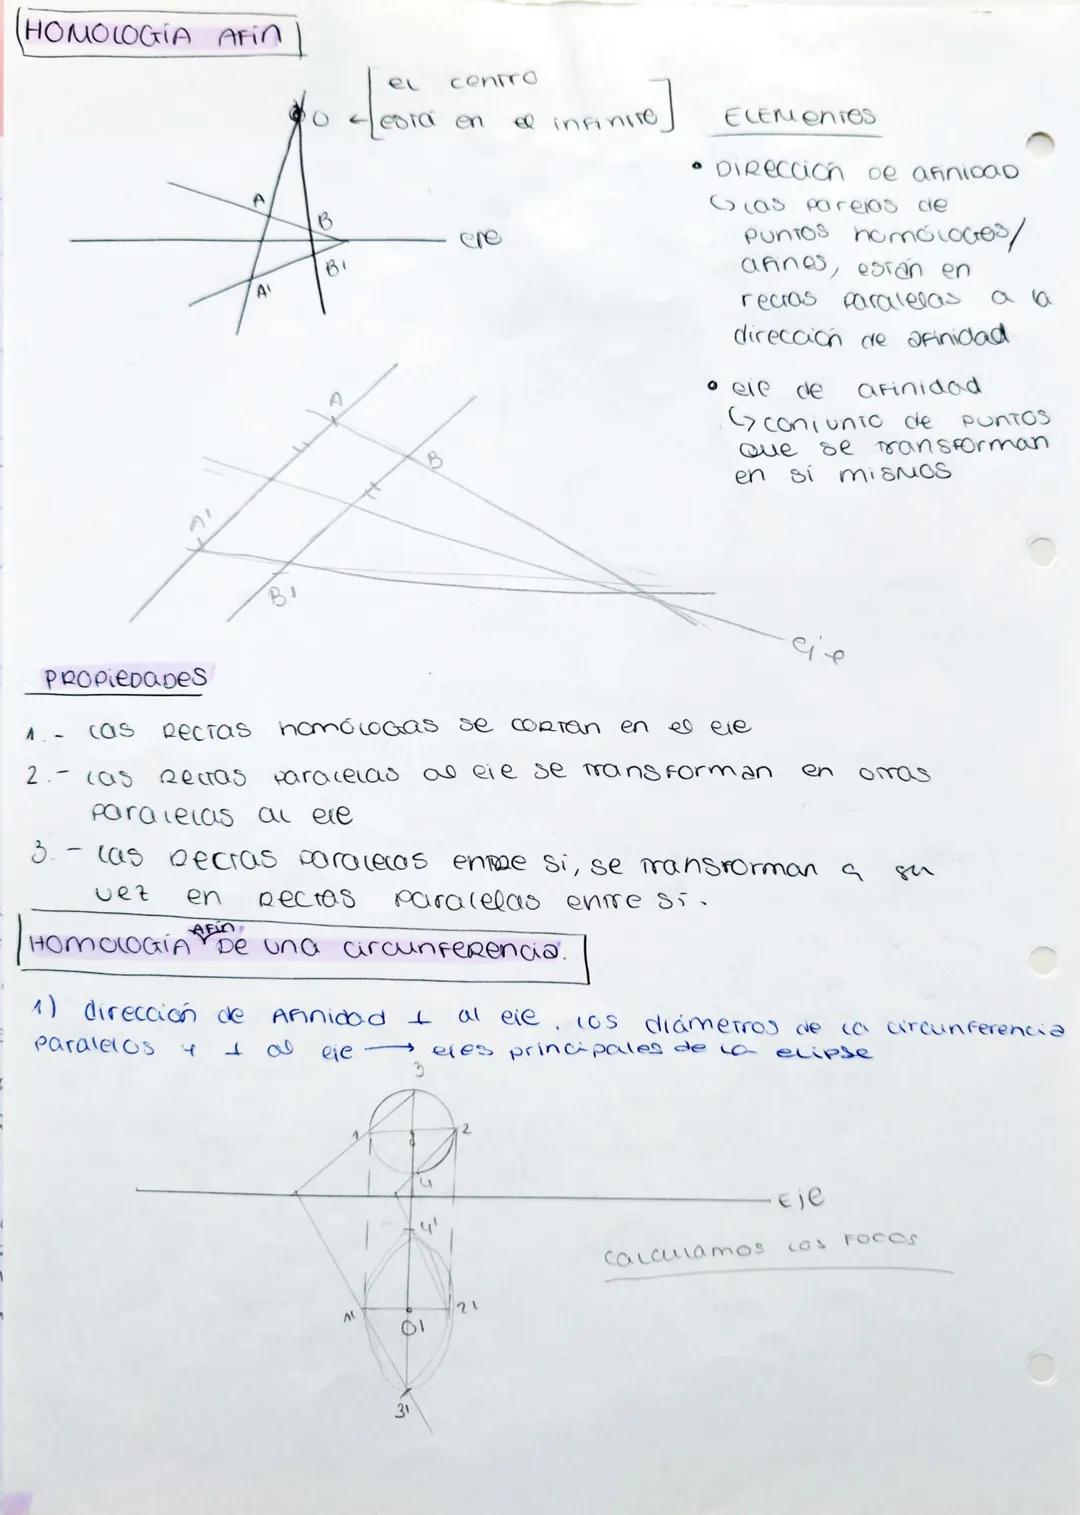 HOMOLOGÍA AFÍN
el centro
O ← está en el infinito
A
B
eje
B'
A'
ELEMENTOS
• DIRECCIÓN DE AFINIDAD
↳ las parejas de
puntos homólogos/
afines, están en
rectas paralelas a la
dirección de afinidad
• eje de afinidad
↳ conjunto de puntos
que se transforman
en sí mismos
A
B
A'
B'
eje
PROPIEDADES
1.- las rectas homólogas se cortan en el eje
2.- las rectas paralelas al eje se transforman en otras
paralelas al eje
3.- las rectas paralelas entre si, se transforman a su
vez en rectas paralelas entre sí.
AFÍN
HOMOLOGÍA DE una circunferencia.
1) dirección de Afinidad ⊥ al eje, los diámetros de la circunferencia
paralelos y ⊥ al eje → ejes principales de la elipse
3
1
2
4
Eje
4'
calculamos los focos
1'
2'
O'
3'